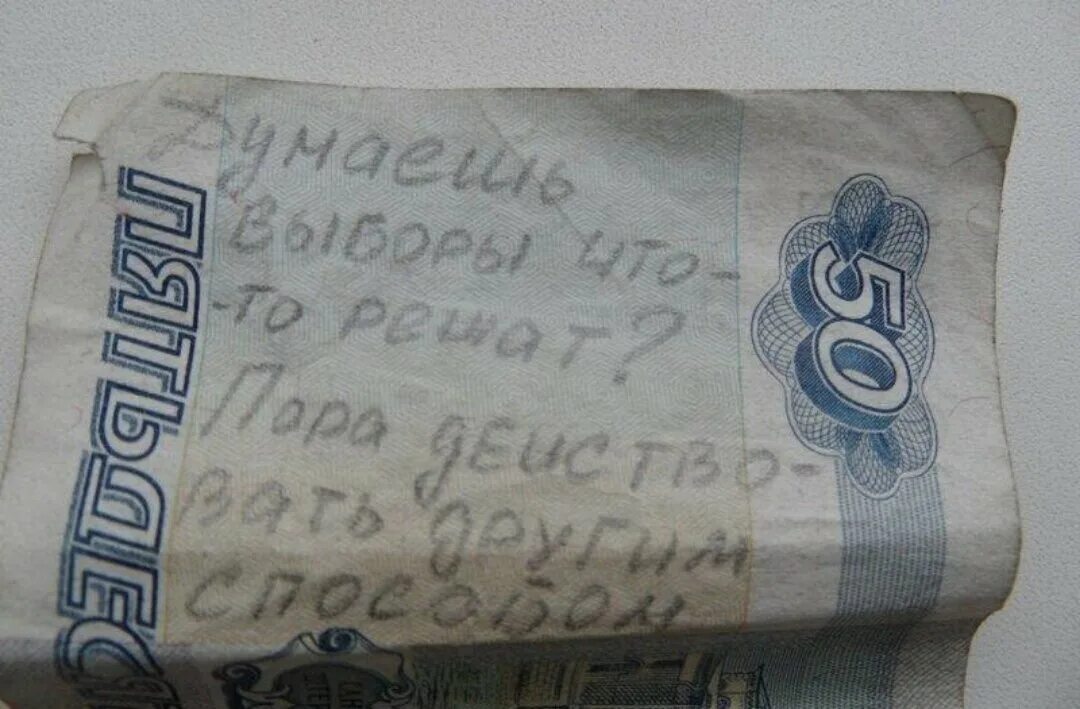 Думаешь
выборы что-
-то решат?
Пора действо-
вать другим
способом
50
ПЯТЬДЕС